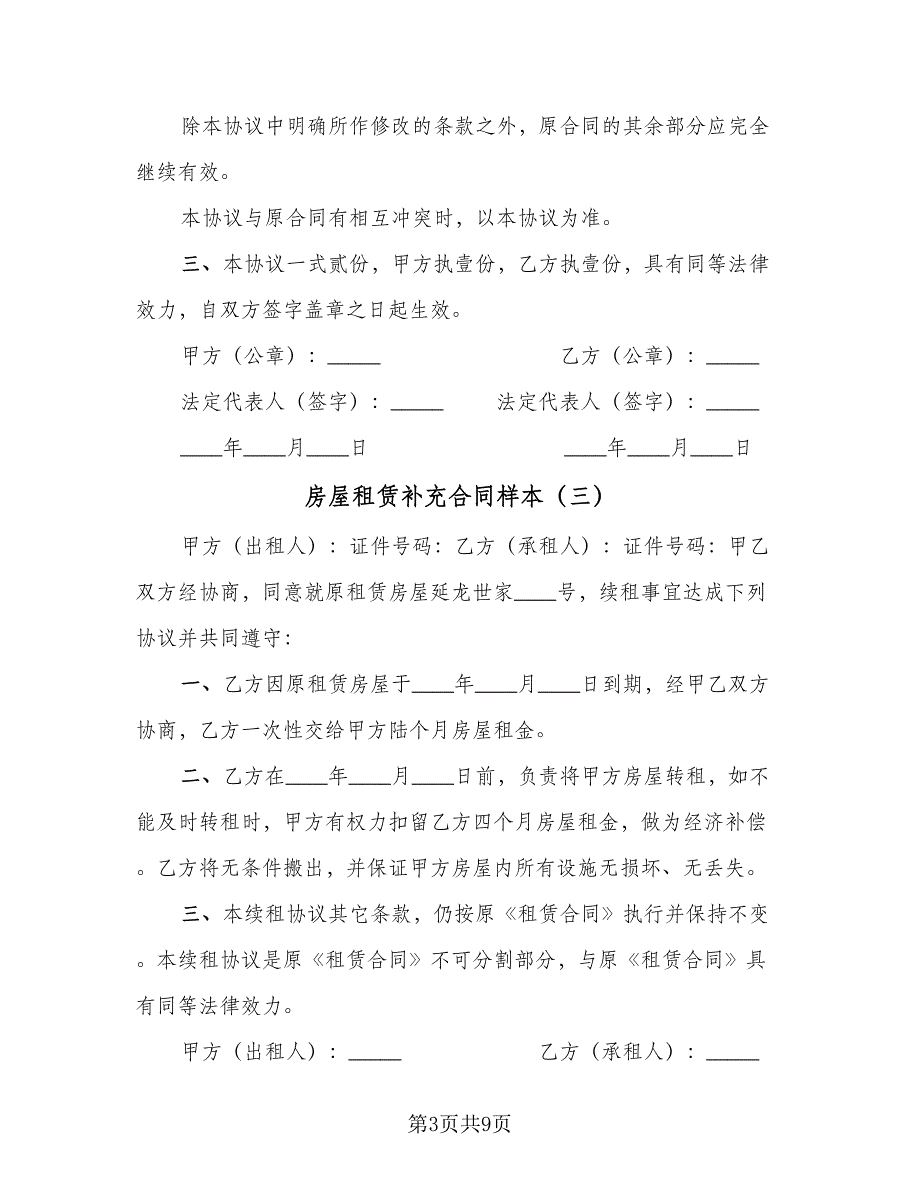 除本协议中明确所作修改的条款之外，原合同的其余部分应完全
继续有效。
本协议与原合同有相互冲突时，以本协议为准。
三、本协议一式贰份，甲方执壹份，乙方执壹份，具有同等法律
效力，自双方签字盖章之日起生效。
甲方（公章）：_____ 乙方（公章）：_____
法定代表人（签字）：_____ 法定代表人（签字）：_____
____年____月____日 ____年____月____日
房屋租赁补充合同样本（三）
甲方（出租人）：证件号码：乙方（承租人）：证件号码：甲乙
双方经协商，同意就原租赁房屋延龙世家____号，续租事宜达成下列
协议并共同遵守：
一、乙方因原租赁房屋于____年____月____日到期，经甲乙双方
协商，乙方一次性交给甲方陆个月房屋租金。
二、乙方在____年____月____日前，负责将甲方房屋转租，如不
能及时转租时，甲方有权力扣留乙方四个月房屋租金，做为经济补偿
。乙方将无条件搬出，并保证甲方房屋内所有设施无损坏、无丢失。
三、本续租协议其它条款，仍按原《租赁合同》执行并保持不变
。本续租协议是原《租赁合同》不可分割部分，与原《租赁合同》具
有同等法律效力。
甲方（出租人）：_____ 乙方（承租人）：_____
第3页共9页